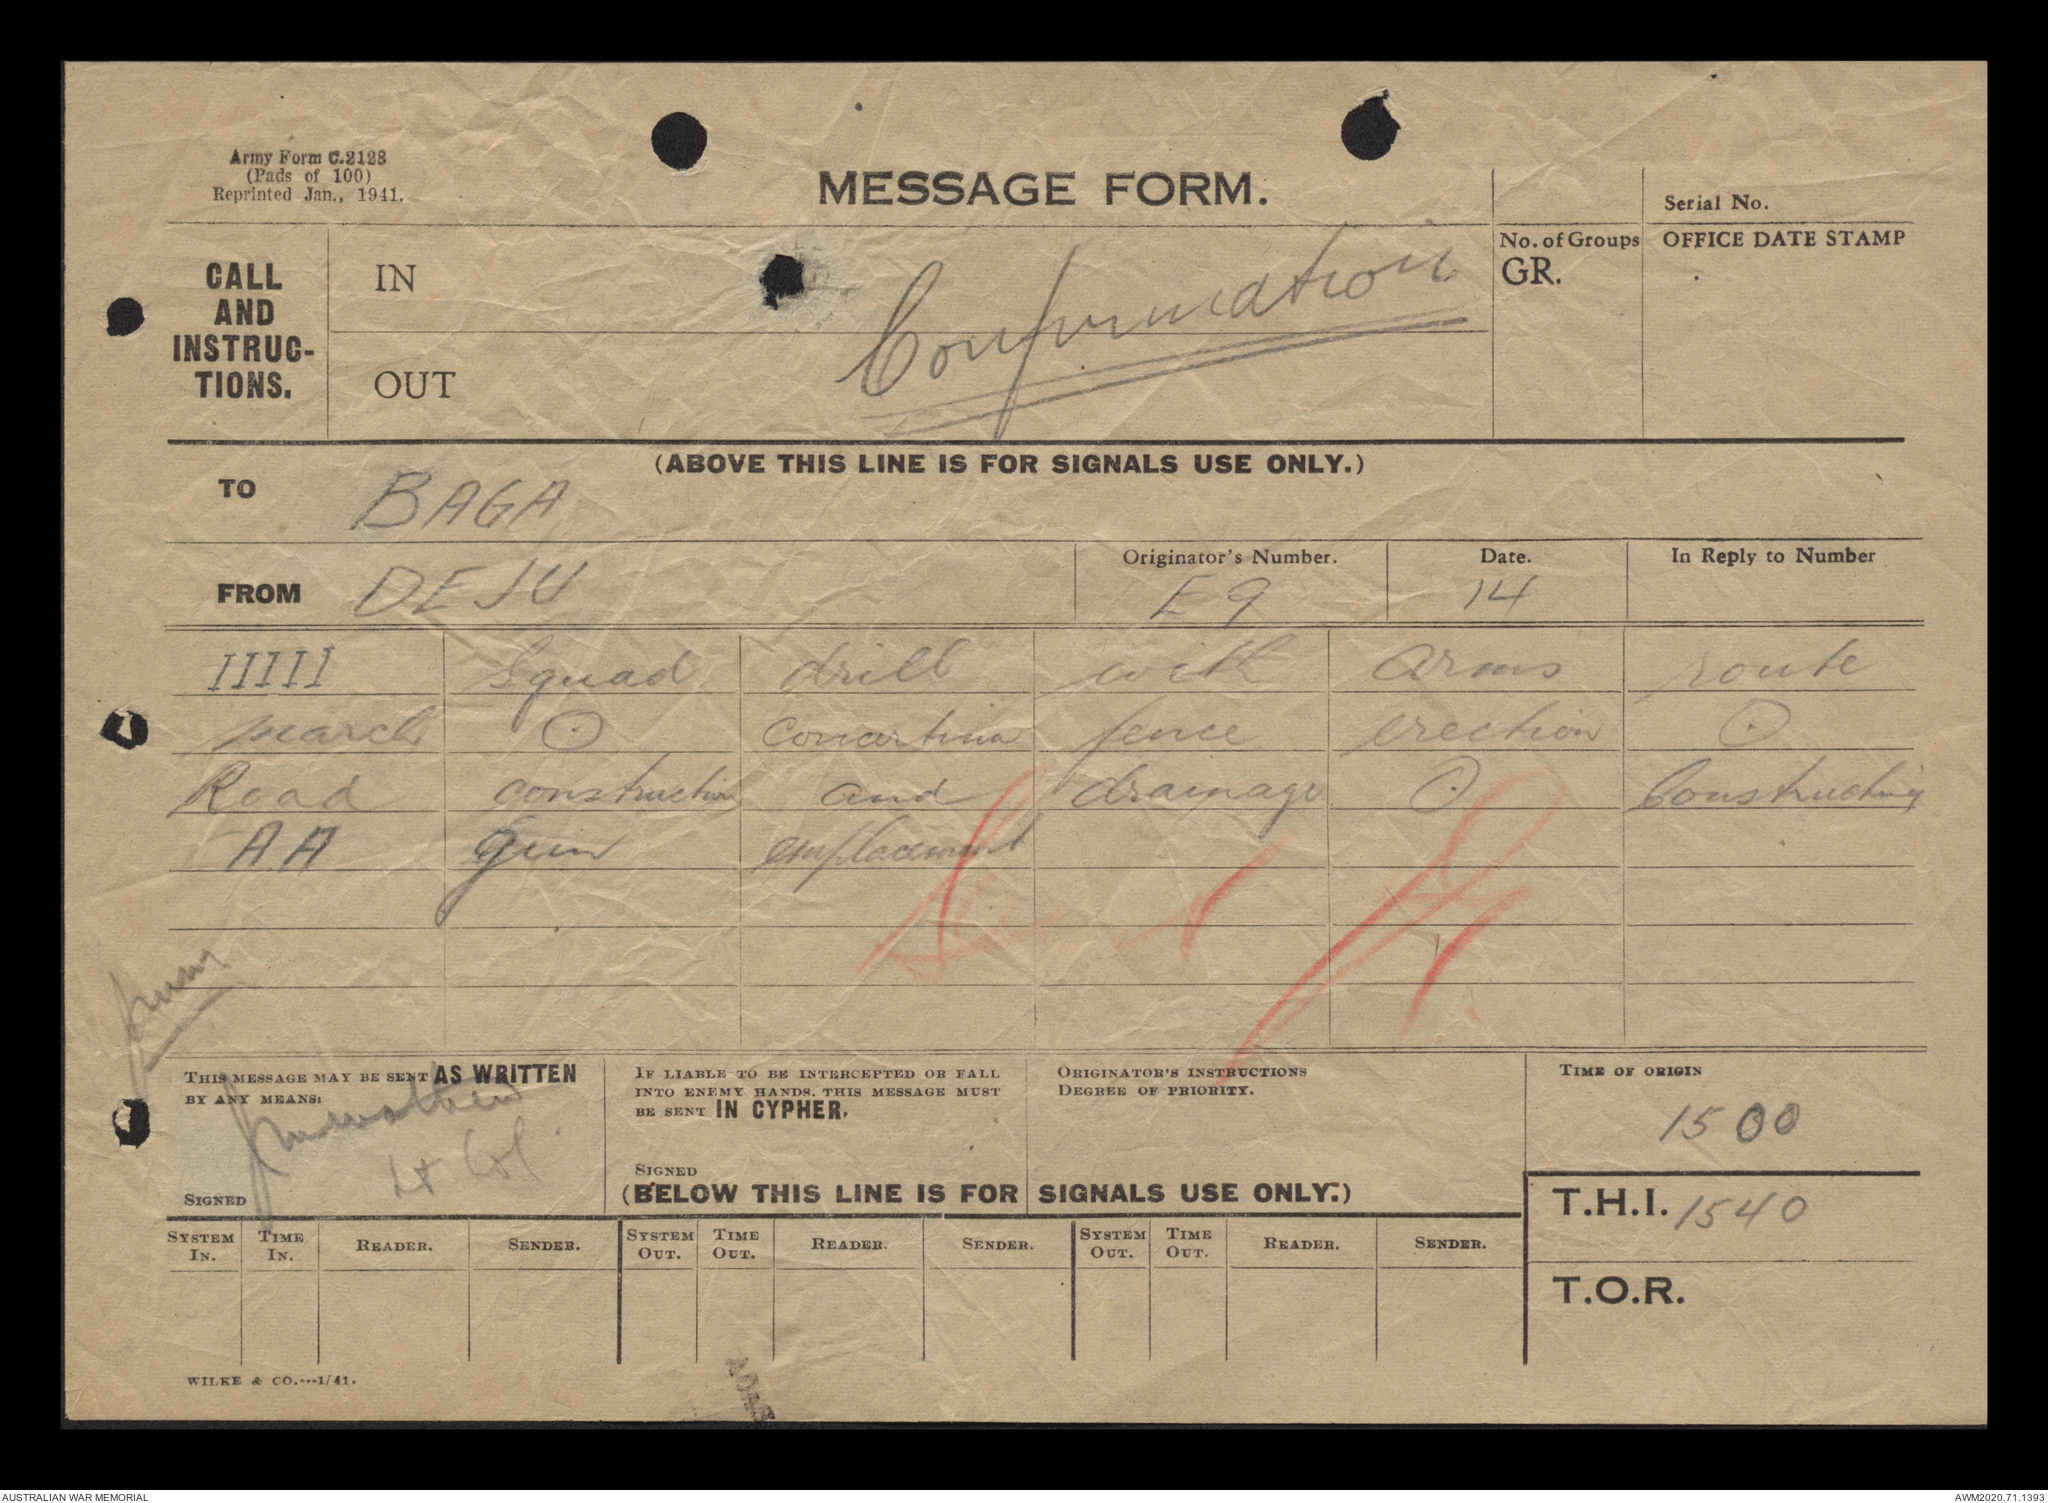 Army Form C.2128
(Pads of 100)
Reprinted Jan., 1941.
MESSAGE FORM.
Serial No.
CALL
AND
INSTRUC-
TIONS.
IN
OUT
Confirmation
No. of Groups
GR.
OFFICE DATE STAMP
(ABOVE THIS LINE IS FOR SIGNALS USE ONLY.)
TO BAGA
FROM DEJU
Originator's Number.
E9
Date.
14
In Reply to Number
IIIII Squad drill with arms route
march ⊙ concertina fence erection ⊙
Road construction and drainage ⊙ Constructing
AA gun emplacement
THIS MESSAGE MAY BE SENT AS WRITTEN
BY ANY MEANS:
Lt Col
SIGNED
IF LIABLE TO BE INTERCEPTED OR FALL
INTO ENEMY HANDS, THIS MESSAGE MUST
BE SENT IN CYPHER.
SIGNED
ORIGINATOR'S INSTRUCTIONS
DEGREE OF PRIORITY.
TIME OF ORIGIN
1500
(BELOW THIS LINE IS FOR SIGNALS USE ONLY.)
T.H.I. 1540
T.O.R.
SYSTEM IN. TIME IN. READER. SENDER. SYSTEM OUT. TIME OUT. READER. SENDER. SYSTEM OUT. TIME OUT. READER. SENDER.
WILKE & CO.---1/41.
AUSTRALIAN WAR MEMORIAL
AWM2020.71.1393